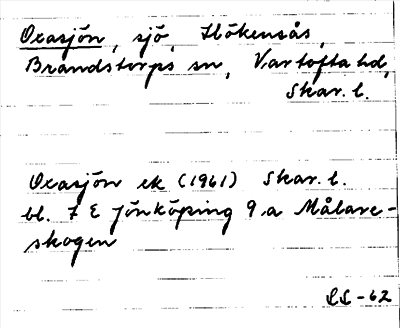 Oxasjön, sjö, Hökensås,
Brandstorps sn, Vartofta hd,
Skar. l.
Oxasjön ek (1961) Skar. l.
bl. 7 E Jönköping 9 a Målare-
skogen
SL -62